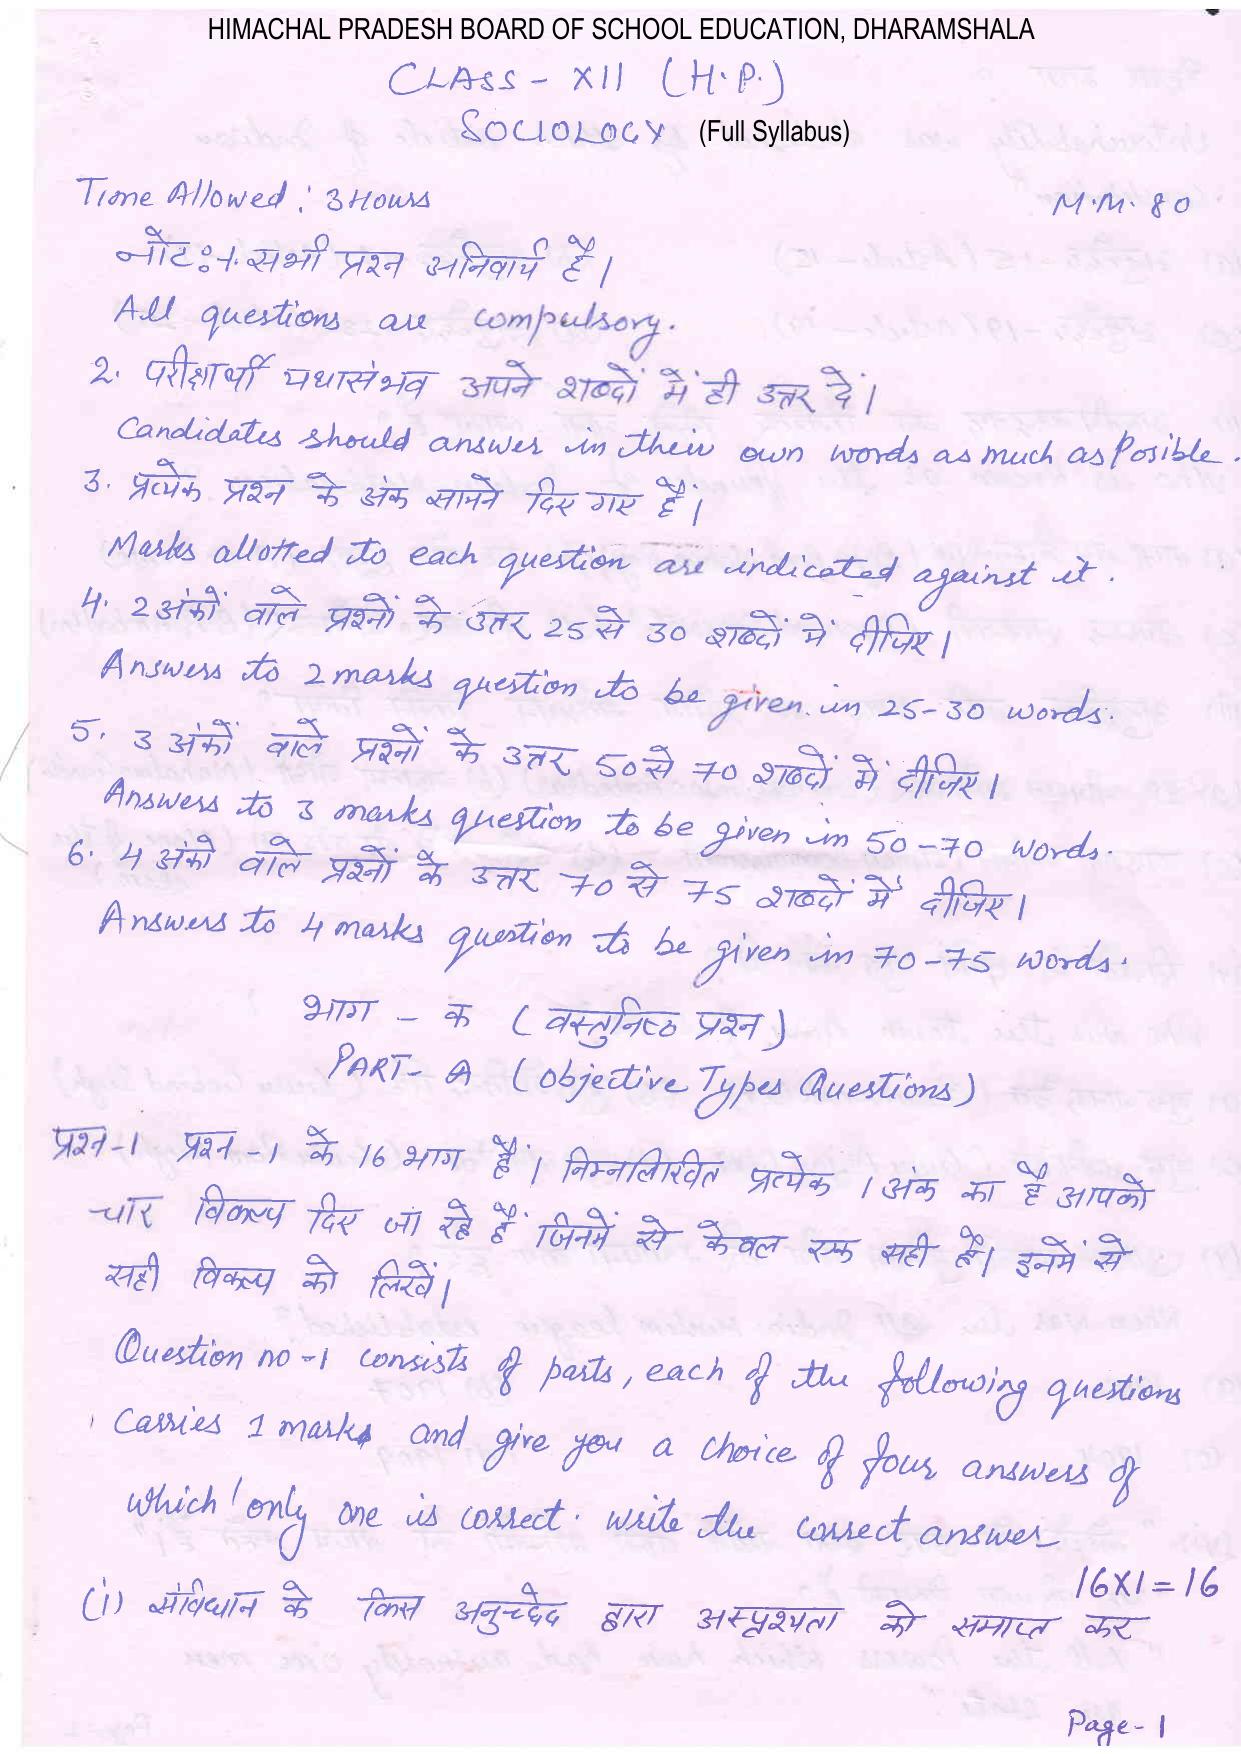 HIMACHAL PRADESH BOARD OF SCHOOL EDUCATION, DHARAMSHALA
CLASS - XII (H.P.)
SOCIOLOGY (Full Syllabus)
Time Allowed : 3 Hours M.M. 80
नोटः-1. सभी प्रश्न अनिवार्य हैं।
All questions are compulsory.
2. परीक्षार्थी यथासंभव अपने शब्दों में ही उत्तर दें।
Candidates should answer in their own words as much as Posible.
3. प्रत्येक प्रश्न के अंक सामने दिए गए हैं।
Marks allotted to each question are indicated against it.
4. 2 अंकों वाले प्रश्नों के उत्तर 25 से 30 शब्दों में दीजिए।
Answers to 2 marks question to be given in 25-30 words.
5. 3 अंकों वाले प्रश्नों के उत्तर 50 से 70 शब्दों में दीजिए।
Answers to 3 marks question to be given in 50-70 words.
6. 4 अंको वाले प्रश्नों के उत्तर 70 से 75 शब्दों में दीजिए।
Answers to 4 marks question to be given in 70-75 words.
भाग - क (वस्तुनिष्ठ प्रश्न)
PART- A (Objective Types Questions)
प्रश्न-1 प्रश्न-1 के 16 भाग हैं। निम्नलिखित प्रत्येक 1 अंक का है आपको
चार विकल्प दिए जा रहे हैं जिनमें से केवल एक सही है। इनमें से
सही विकल्प को लिखें।
Question no-1 consists of parts, each of the following questions
Carries 1 marks and give you a choice of four answers of
which only one is correct. write the correct answer
16X1=16
(i) संविधान के किस अनुच्छेद द्वारा अस्पृश्यता को समाप्त कर
Page-1